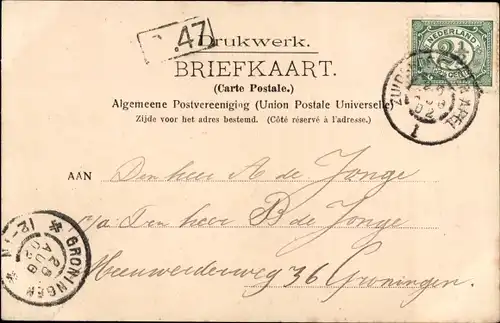 47
Drukwerk.
NEDERLAND
2½
BRIEFKAART.
(Carte Postale.)
Algemeene Postvereeniging (Union Postale Universelle)
Zijde voor het adres bestemd. (Côté réservé à l'adresse.)
AAN Den heer A de Jonge
p/a Den heer B de Jonge
Meeuwerderweg 36 Groningen
GRONINGEN
28
AUG
02